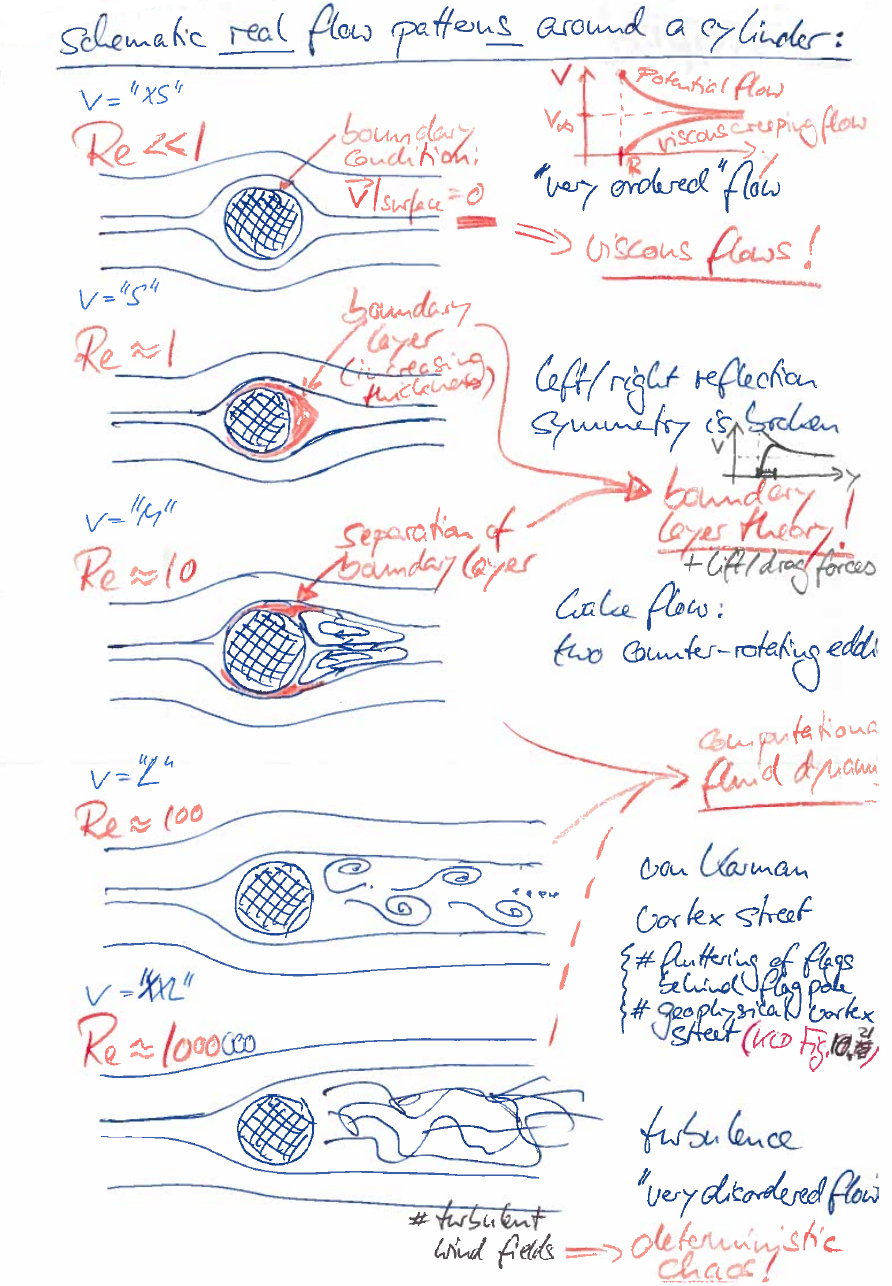 Schematic real flow patterns around a cylinder:
v = "XS"
Re << 1
boundary
condition:
v|surface = 0
V
Potential flow
V∞
viscous creeping flow
R
y
"very ordered" flow
=> viscous flows!
v = "S"
Re ≈ 1
boundary
layer
(increasing
thickness)
left/right reflection
symmetry is broken
V
y
boundary
layer theory!
+ lift/drag forces
v = "M"
Re ≈ 10
separation of
boundary layer
wake flow:
two counter-rotating eddi
computationa
fluid dynami
v = "L"
Re ≈ 100
von Karman
vortex street
# fluttering of flags
behind flag pole
# geophysical vortex
street (KCD Fig. 10.21)
v = "XXL"
Re ≈ 1000000
turbulence
"very disordered flow
# turbulent
wind fields => deterministic
chaos!